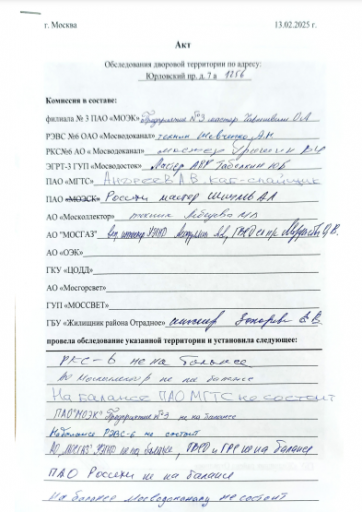 г. Москва 13.02.2025 г.
Акт
Обследования дворовой территории по адресу:
Юрловский пр. д. 7 а
Комиссия в составе:
филиала № 3 ПАО «МОЭК» Предприятие №3 мастер О.А
РЭВС №6 ОАО «Мосводоканал» техник Шевченко А.М
РКС№6 АО « Мосводоканал» мастер
ЭГРТ-3 ГУП «Мосводосток» Мастер
ПАО «МГТС» Андреев А В каб-спайщик
ПАО «МОЭСК» Россети мастер
АО «Москоллектор» техник
АО "МОСГАЗ"
АО «ОЭК»
ГКУ «ЦОДД»
АО «Мосгорсвет»
ГУП «МОССВЕТ»
ГБУ «Жилищник района Отрадное» инженер В.В.
провела обследование указанной территории и установила следующее:
РКС-6 не на балансе
АО Москоллектор не на балансе
На балансе ПАО МГТС не состоит
ПАО "МОЭК" Предприятие №3 не на балансе
На балансе РЭВС-6 не состоит
АО "МОСГАЗ" не на балансе, и ГРС не на балансе
ПАО Россети не на балансе
На балансе Мосводоканал не состоит